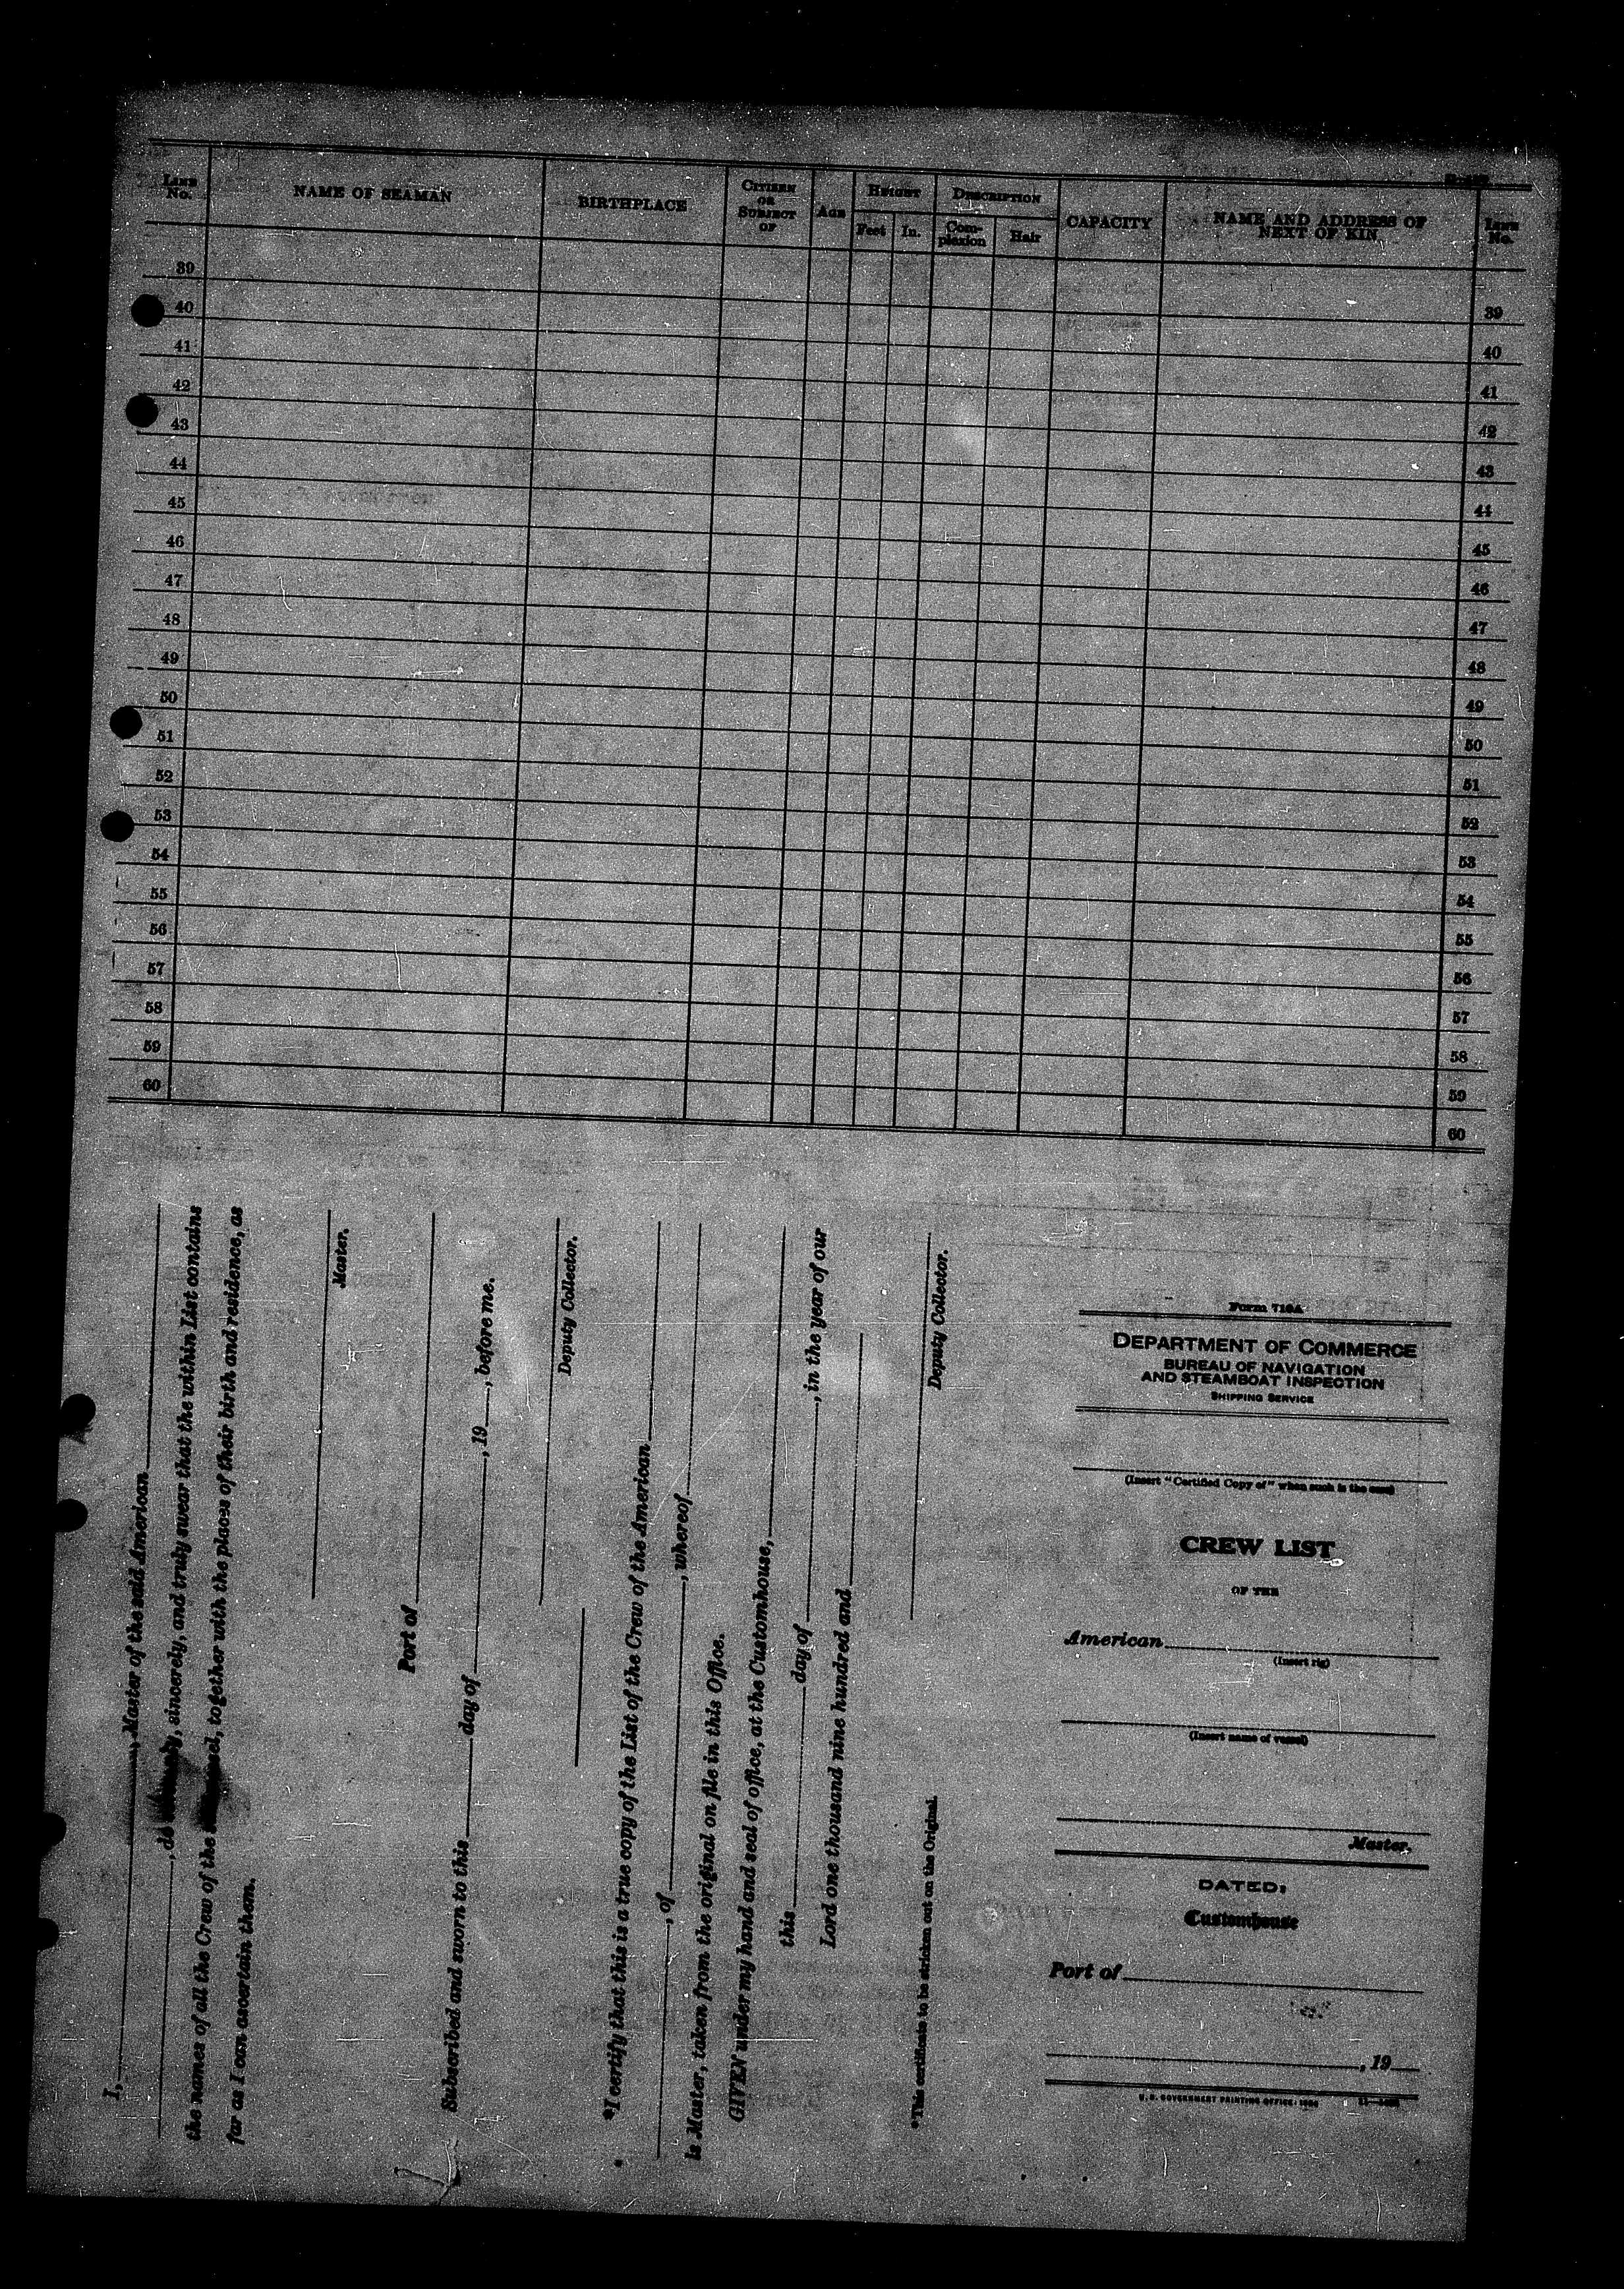 LINE No. NAME OF SEAMAN BIRTHPLACE CITIZEN OR SUBJECT OF AGE HEIGHT Feet In. DESCRIPTION Com-plexion Hair CAPACITY NAME AND ADDRESS OF NEXT OF KIN LINE No.
39 39
40 40
41 41
42 42
43 43
44 44
45 45
46 46
47 47
48 48
49 49
50 50
51 51
52 52
53 53
54 54
55 55
56 56
57 57
58 58
59 59
60 60
I, , Master of the said American
, do , sincerely, and truly swear that the within List contains
the names of all the Crew of the , together with the places of their birth and residence, as
far as I can ascertain them.
Master.
Port of
Subscribed and sworn to this day of , 19 , before me.
Deputy Collector.
*I certify that this is a true copy of the List of the Crew of the American
, of , whereof
is Master, taken from the original on file in this Office.
GIVEN under my hand and seal of office, at the Customhouse,
this day of , in the year of our
Lord one thousand nine hundred and
Deputy Collector.
*This certificate to be stricken out on the Original.
Form 710A
DEPARTMENT OF COMMERCE
BUREAU OF NAVIGATION
AND STEAMBOAT INSPECTION
SHIPPING SERVICE
(Insert "Certified Copy of" when such is the case)
CREW LIST
OF THE
American
(Insert rig)
(Insert name of vessel)
Master.
DATED:
Customhouse
Port of
, 19
U. S. GOVERNMENT PRINTING OFFICE: